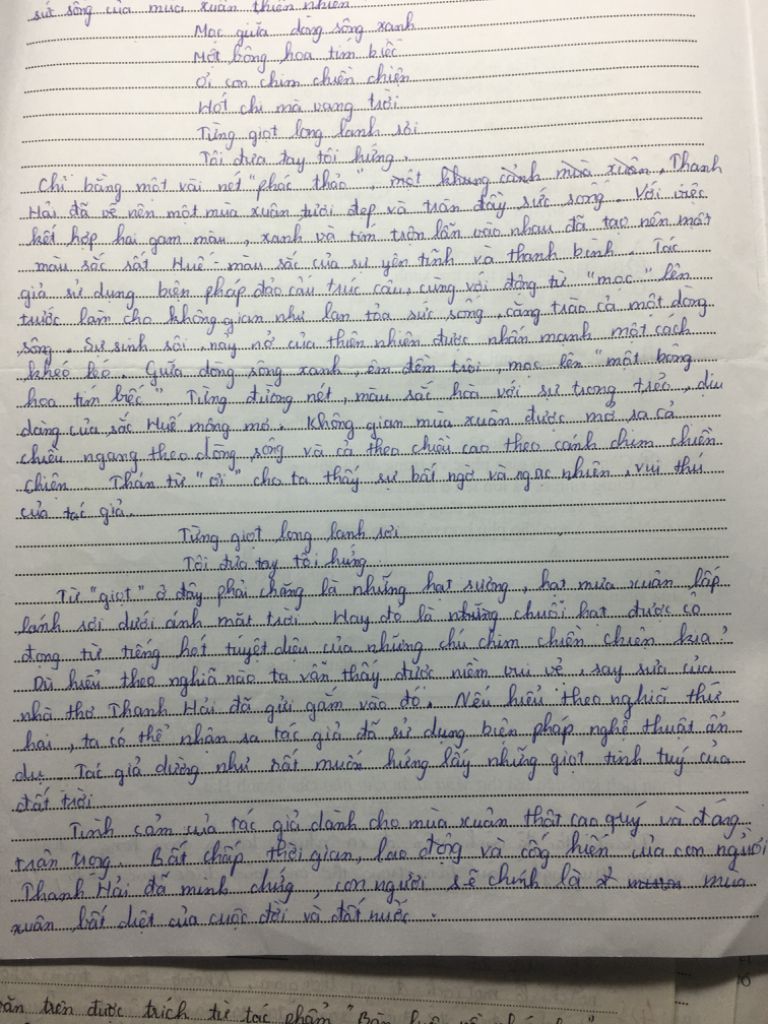 sức sống của mùa xuân thiên nhiên
Mọc giữa dòng sông xanh
Một bông hoa tím biếc
Ơi con chim chiền chiện
Hót chi mà vang trời
Từng giọt long lanh rơi
Tôi đưa tay tôi hứng.
Chỉ bằng một vài nét "phác thảo", một khung cảnh mùa xuân, Thanh
Hải đã vẽ nên một mùa xuân tươi đẹp và tràn đầy sức sống. Với việc
kết hợp hai gam màu, xanh và tím trộn lẫn vào nhau đã tạo nên một
màu sắc rất Huế - màu sắc của sự yên tĩnh và thanh bình. Tác
giả sử dụng biện pháp đảo cấu trúc câu, cùng với động từ "mọc" lên
trước làm cho không gian như lan tỏa sức sống, căng trào cả một dòng
sông. Sự sinh sôi, nảy nở của thiên nhiên được nhấn mạnh một cách
khéo léo. Giữa dòng sông xanh, êm đềm trôi, mọc lên "một bông
hoa tím biếc". Từng đường nét, màu sắc hòa với sự trong trẻo, dịu
dàng của sắc Huế mộng mơ. Không gian mùa xuân được mở ra cả
chiều ngang theo dòng sông và cả theo chiều cao theo cánh chim chiền
chiện. Thán từ "ơi" cho ta thấy sự bất ngờ và ngạc nhiên, vui thú
của tác giả.
Từng giọt long lanh rơi
Tôi đưa tay tôi hứng
Từ "giọt" ở đây phải chăng là những hạt sương, hạt mưa xuân lấp
lánh rơi dưới ánh mặt trời. Hay đó là những chuỗi hạt được cô
đọng từ tiếng hót tuyệt diệu của những chú chim chiền chiện kia?
Dù hiểu theo nghĩa nào ta vẫn thấy được niềm vui vẻ, say sưa của
nhà thơ Thanh Hải đã gửi gắm vào đó. Nếu hiểu theo nghĩa thứ
hai, ta có thể nhận ra tác giả đã sử dụng biện pháp nghệ thuật ẩn
dụ. Tác giả dường như rất muốn hứng lấy những giọt tinh tuý của
đất trời
Tình cảm của tác giả dành cho mùa xuân thật cao quý và đáng
trân trọng. Bất chấp thời gian, lao động và cống hiến của con người
Thanh Hải đã minh chứng, con người sẽ chính là mùa
xuân bất diệt của cuộc đời và đất nước.
văn trên được trích từ tác phẩm